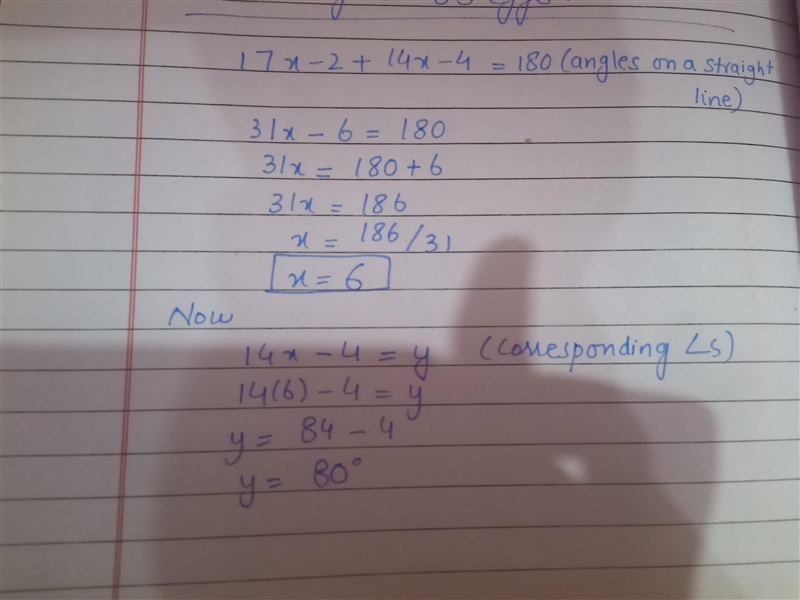 17x-2 + 14x-4 = 180 (angles on a straight
line)
31x - 6 = 180
31x = 180+6
31x = 186
x = 186/31
x = 6
Now
14x - 4 = y (Corresponding ∠s)
14(6) - 4 = y
y = 84 - 4
y = 80°